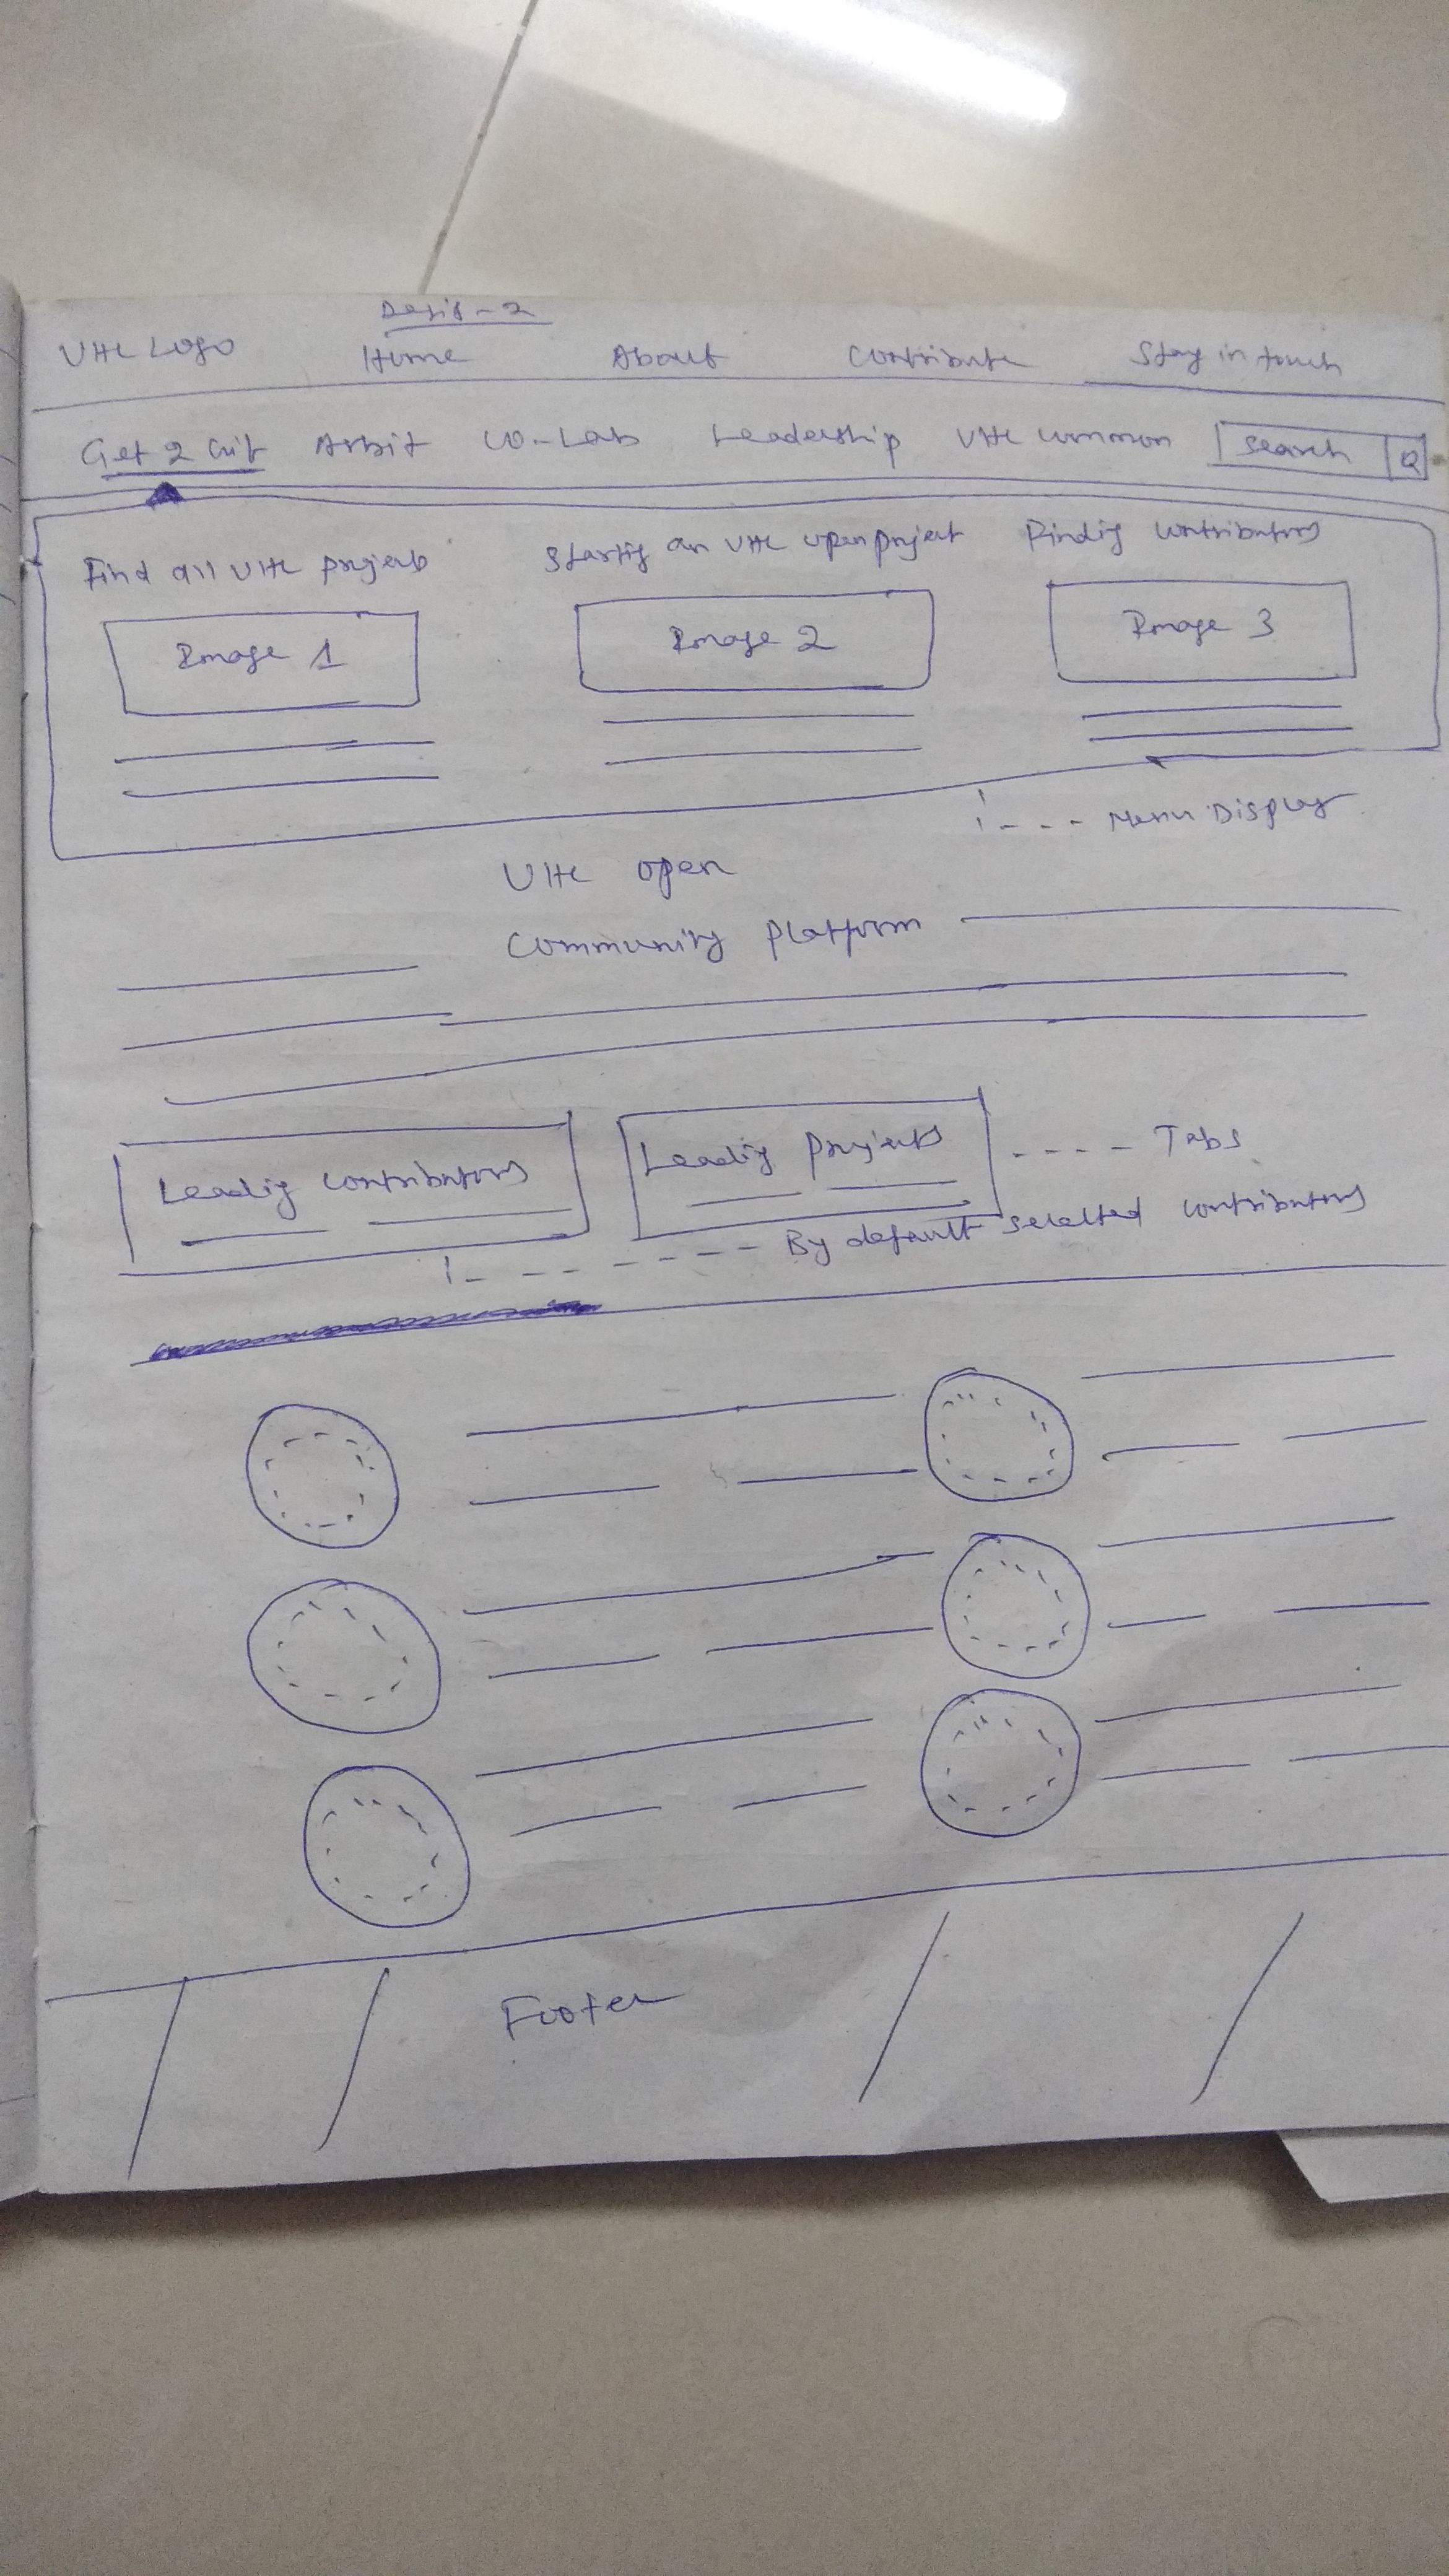 Desig - 2
UHC Logo Home About Contribute Stay in touch
Get 2 Arbit Co-Lab Leadership UHC common Search
Find all UHC projects Startig an UHC open project Findig contributors
Image 1 Image 2 Image 3
Menu Display
UHC open
Community Platform
Leadig contributors Leadig projects Tabs
By default selected contributors
Footer